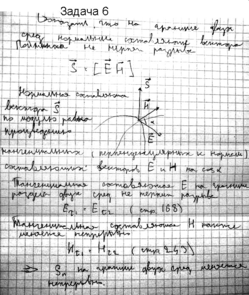 Задача 6
Доказать что на границе двух
сред нормальная составляющая вектора
Пойнтинга не терпит разрыв
S⃗ = [E⃗ H⃗]
S⃗
H⃗
E⃗
Нормальная составляющая
вектора S⃗
по модулю равна
произведению
тангенциальных (перпендикулярных к нормали)
составляющих векторов E и H на
Тангенциальная составляющая E на границе
раздела двух сред не терпит разрыва
Eτ1 = Eτ2 (стр 168)
Тангенциальная составляющая H также
меняется непрерывно
Hτ1 = Hτ2 (стр 243)
⇒ Sn на границе двух сред меняется
непрерывно.